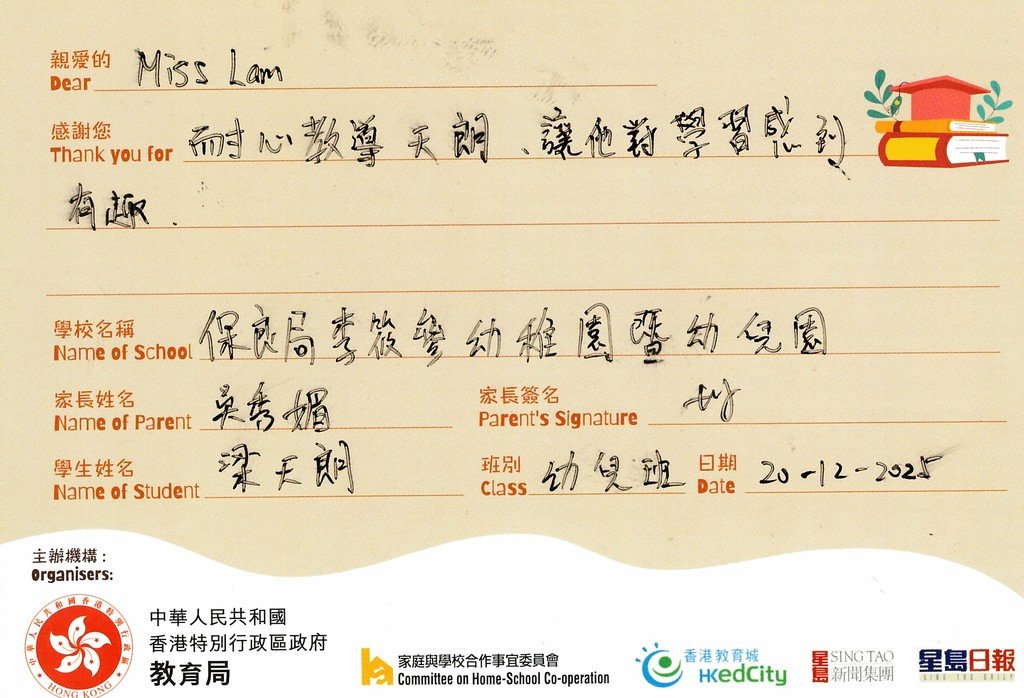 親愛的
Dear Miss Lam
感謝您
Thank you for 耐心教導天朗、讓他對學習感到
有趣.
學校名稱
Name of School 保良局李筱參幼稚園暨幼兒園
家長姓名 家長簽名
Name of Parent 吳秀媚 Parent's Signature
學生姓名 班別 日期
Name of Student 梁天朗 Class 幼兒班 Date 20-12-2025
主辦機構：
Organisers:
中華人民共和國香港特別行政區政府
HONG KONG
中華人民共和國
香港特別行政區政府
教育局
家庭與學校合作事宜委員會
Committee on Home-School Co-operation
香港教育城
HKedCity
星島 SING TAO
新聞集團
星島日報
SING TAO DAILY